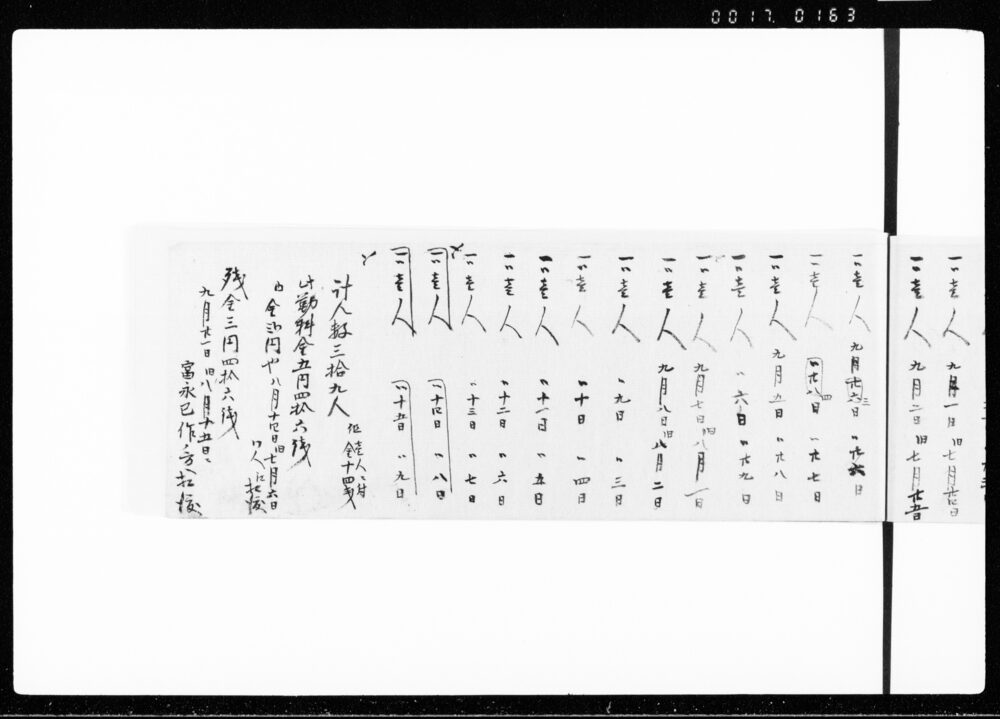 0017. 0163
一〃壱人 九月一日 旧七月廿四日
一〃壱人 九月二日 旧七月廿五日
一〃壱人 九月三日 〃廿六日
一〃壱人 〃四日 〃廿七日
一〃壱人 九月五日 〃廿八日
一〃壱人 〃六日 〃廿九日
一〃壱人 九月七日 旧八月一日
一〃壱人 九月八日 旧八月二日
一〃壱人 〃九日 〃三日
一〃壱人 〃十日 〃四日
一〃壱人 〃十一日 〃五日
一〃壱人 〃十二日 〃六日
一〃壱人 〃十三日 〃七日
一〃壱人 〃十四日 〃八日
一〃壱人 〃十五日 〃九日
計人数三拾九人 但壱人ニ付金十四銭
此勤料金五円四拾六銭
内金弐円也 八月十四日旧七月六日
〃人払渡
残金三円四拾六銭
九月廿一日 旧八月十五日
富永巳作ノ方払渡